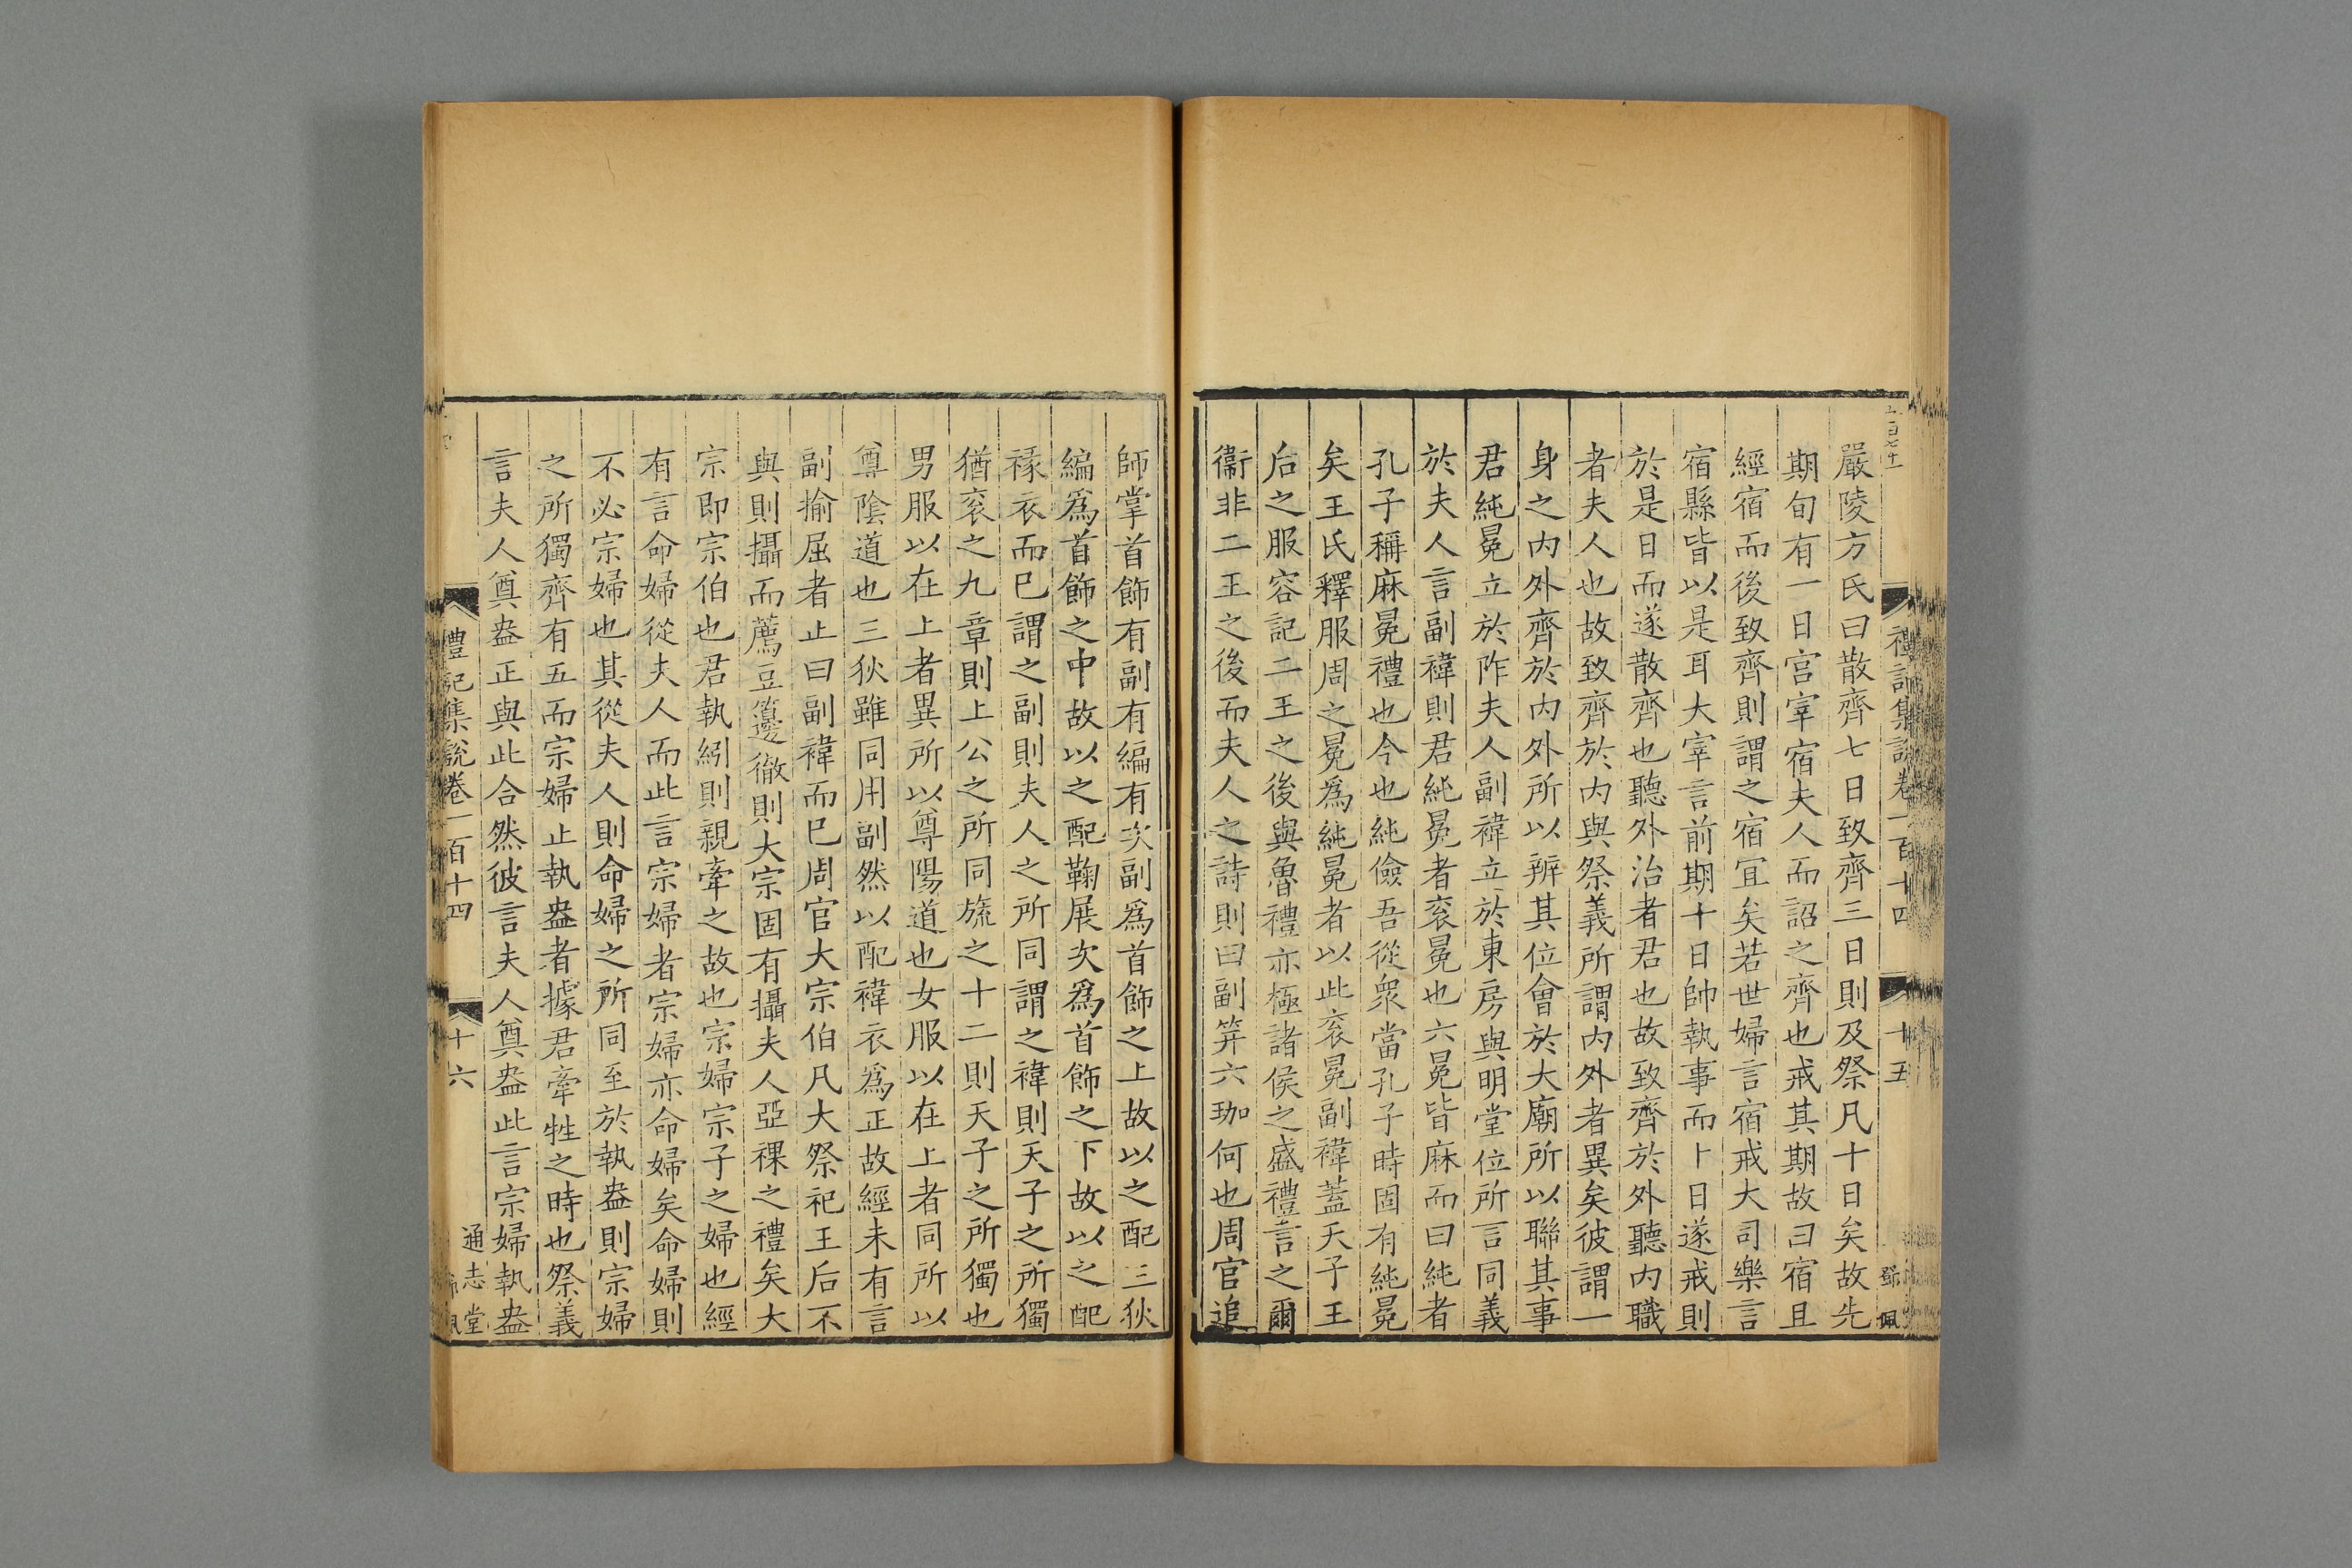 嚴陵方氏曰散齊七日致齊三日則及祭凡十日矣故先
期旬有一日宫宰宿夫人而詔之齊也戒其期故曰宿且
經宿而後致齊則謂之宿宜矣若世婦言宿戒大司樂言
宿縣皆以是耳大宰言前期十日帥執事而卜日遂戒則
於是日而遂散齊也聽外治者君也故致齊於外聽内職
者夫人也故致齊於内與祭義所謂内外者異矣彼謂一
身之内外齊於内外所以辨其位會於大廟所以聯其事
君純冕立於阼夫人副褘立於東房與明堂位所言同義
於夫人言副褘則君純冕者衮冕也六冕皆麻而曰純者
孔子稱麻冕禮也今也純儉吾從衆當孔子時固有純冕
矣王氏釋服周之冕爲純冕者以此衮冕副褘蓋天子王
后之服容記二王之後與魯禮亦極諸侯之盛禮言之爾
衞非二王之後而夫人之詩則曰副笄六珈何也周官追
師掌首飾有副有編有次副爲首飾之上故以之配三狄
編爲首飾之中故以之配鞠展次爲首飾之下故以之配
褖衣而已謂之副則夫人之所同謂之褘則天子之所獨
猶衮之九章則上公之所同旒之十二則天子之所獨也
男服以在上者異所以尊陽道也女服以在上者同所以
尊陰道也三狄雖同用副然以配褘衣爲正故經未有言
副揄屈者止曰副褘而已周官大宗伯凡大祭祀王后不
與則攝而薦豆籩徹則大宗固有攝夫人亞祼之禮矣大
宗即宗伯也君執紖則親牽之故也宗婦宗子之婦也經
有言命婦從夫人而此言宗婦者宗婦亦命婦矣命婦則
不必宗婦也其從夫人則命婦之所同至於執盎則宗婦
之所獨齊有五而宗婦止執盎者據君牽牲之時也祭義
言夫人奠盎正與此合然彼言夫人奠盎此言宗婦執盎
禮記集說卷一百十四
十五
鄧珮
禮記集說卷一百十四
十六
通志堂